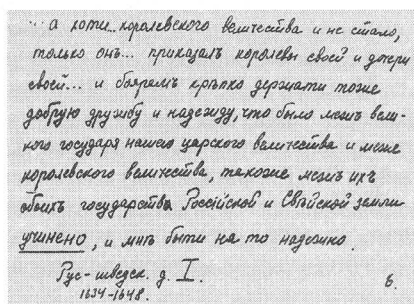 ... а хоти.. королевского величества и не стало,
только онъ... приказалъ королевы своей и дочери
своей... и бояремъ крѣпко держати тоже
добрую дружбу и надежду, что было межъ вели-
кого государя нашего царского величества и межъ
королевского величества, такоже межъ ихъ
обоихъ государства Росѣйской и Свѣйской земли
учинено, и мнѣ быти на то надежно.
Рус-шведск. д. I.
1634-1648.
б.